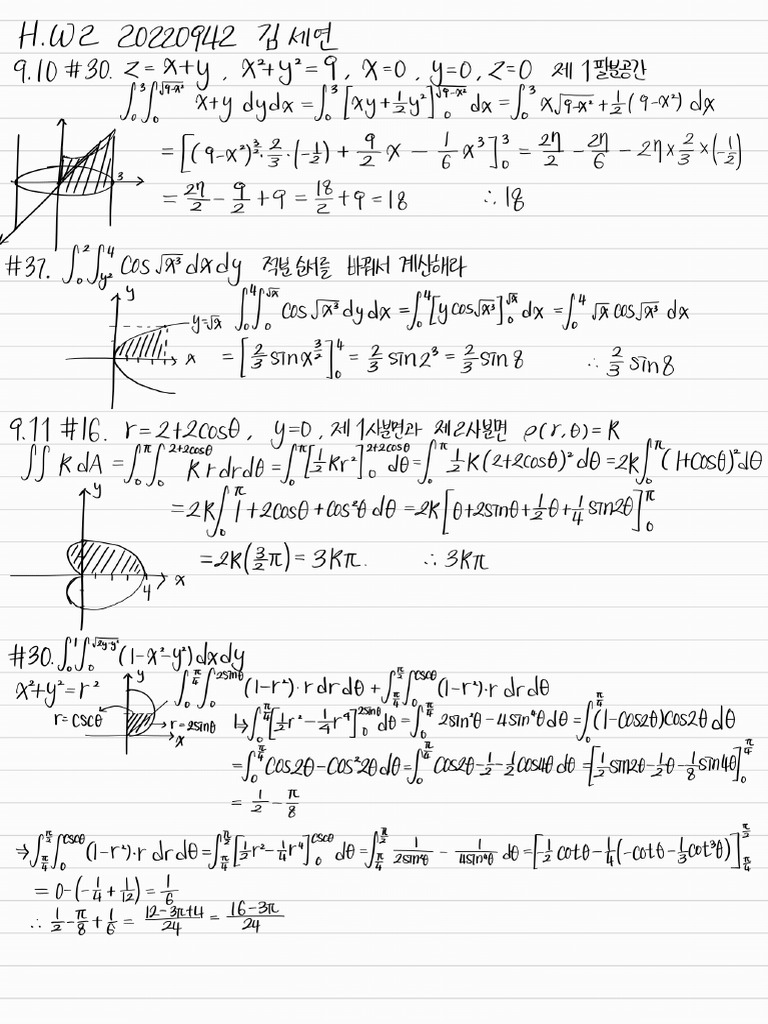 H.W2 20220942 김세연
9.10 #30. z=x+y, x²+y²=9, x=0, y=0, z=0 제 1팔분공간
∫₀³∫₀^√(9-x²) x+y dydx = ∫₀³[xy+½y²]₀^√(9-x²) dx = ∫₀³ x√(9-x²)+½(9-x²) dx
= [(9-x²)^(3/2)·⅔·(-½) + 9/2 x - 1/6 x³]₀³ = 27/2 - 27/6 - 27×⅔×(-½)
3
= 27/2 - 9/2 + 9 = 18/2 + 9 = 18 ∴ 18
#37. ∫₀²∫_{y²}^4 cos√x³ dxdy 적분 순서를 바꿔서 계산해라
y
y=√x
x
∫₀⁴∫₀^√x cos√x³ dydx = ∫₀⁴[y cos√x³]₀^√x dx = ∫₀⁴ √x cos√x³ dx
= [⅔ sin x^(3/2)]₀⁴ = ⅔ sin2³ = ⅔ sin8 ∴ ⅔ sin8
9.11 #16. r=2+2cosθ, y=0, 제1사분면과 제2사분면 ρ(r,θ)=k
∬ k dA = ∫₀^π∫₀^(2+2cosθ) k r drdθ = ∫₀^π[½kr²]₀^(2+2cosθ) dθ = ∫₀^π ½k(2+2cosθ)² dθ = 2k∫₀^π (1+cosθ)² dθ
y
= 2k∫₀^π 1+2cosθ+cos²θ dθ = 2k[θ+2sinθ+½θ+¼sin2θ]₀^π
= 2k(3/2 π) = 3kπ. ∴ 3kπ
4 x
#30. ∫₀¹∫₀^√(2y-y²) (1-x²-y²) dxdy
x²+y²=r²
y
r=cscθ
r=2sinθ
x
∫₀^(π/4)∫₀^(2sinθ) (1-r²)·r drdθ + ∫_{π/4}^(π/2)∫₀^(cscθ) (1-r²)·r drdθ
↳ ∫₀^(π/4)[½r²-¼r⁴]₀^(2sinθ) dθ = ∫₀^(π/4) 2sin²θ-4sin⁴θ dθ = ∫₀^(π/4) (1-cos2θ)cos2θ dθ
= ∫₀^(π/4) cos2θ-cos²2θ dθ = ∫₀^(π/4) cos2θ-½-½cos4θ dθ = [½sin2θ-½θ-⅛sin4θ]₀^(π/4)
= ½ - π/8
→ ∫_{π/4}^(π/2)∫₀^(cscθ) (1-r²)·r drdθ = ∫_{π/4}^(π/2)[½r²-¼r⁴]₀^(cscθ) dθ = ∫_{π/4}^(π/2) 1/(2sin²θ) - 1/(4sin⁴θ) dθ = [-½cotθ-¼(-cotθ-⅓cot³θ)]_{π/4}^(π/2)
= 0-(-¼+1/12) = 1/6
∴ ½-π/8+1/6 = (12-3π+4)/24 = (16-3π)/24